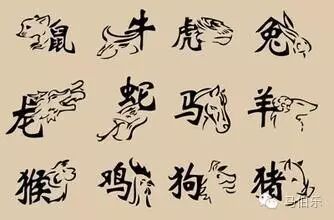 鼠 牛 虎 兔
龙 蛇 马 羊
猴 鸡 狗 猪
马伯乐